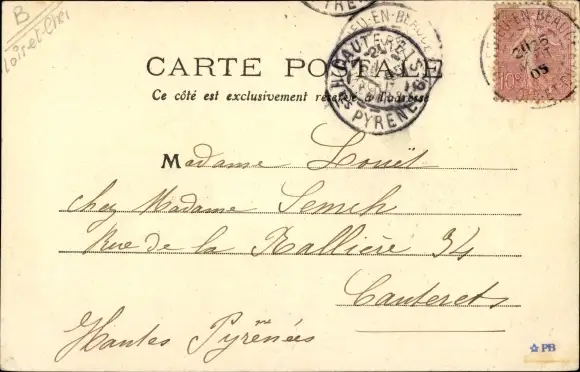 B
Loir-et-Cher
CARTE POSTALE
Ce côté est exclusivement réservé à l'adresse
CAUTERETS
Htes PYRENEES
EU-EN-BEAUCE
20-5
05
10
Madame Louët
chez Madame Semch
Rue de la Rallière 34
Cauterets
Hautes Pyrénées
PB